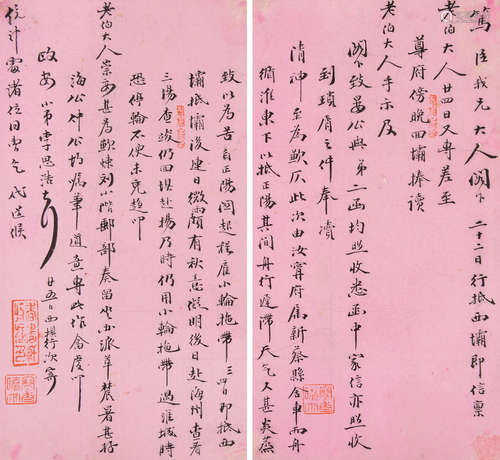 篤臣我兄大人閣下 二十二日行抵西壩即信稟
老伯大人 廿四日又專差至
尊府傍晚回壩捧讀
老伯大人手示及
閣下致晏公與弟二函均照收悉函中家信亦照收
到瑣屑之件奉瀆
清神至為歉仄此次由汝寧府屬新蔡縣舍車而舟
循淮東下以抵正陽其間舟行遲滯天氣又甚炎蒸
致以為苦自正陽關起程雇小輪拖帶三四日即抵西
壩抵壩後連日微雨頗有秋意擬明後日赴海州查看
三場查竣仍回壩赴揚乃時仍用小輪拖帶過淮城時
恐停輪不便未克趨叩
老伯大人崇安甚為歉悚刘小階部郎奏留 亦派
海公仲公均 筆道意專此 虔叩
政安 小弟李思浩 廿五日西壩行次
統計處諸位同 乞代道候